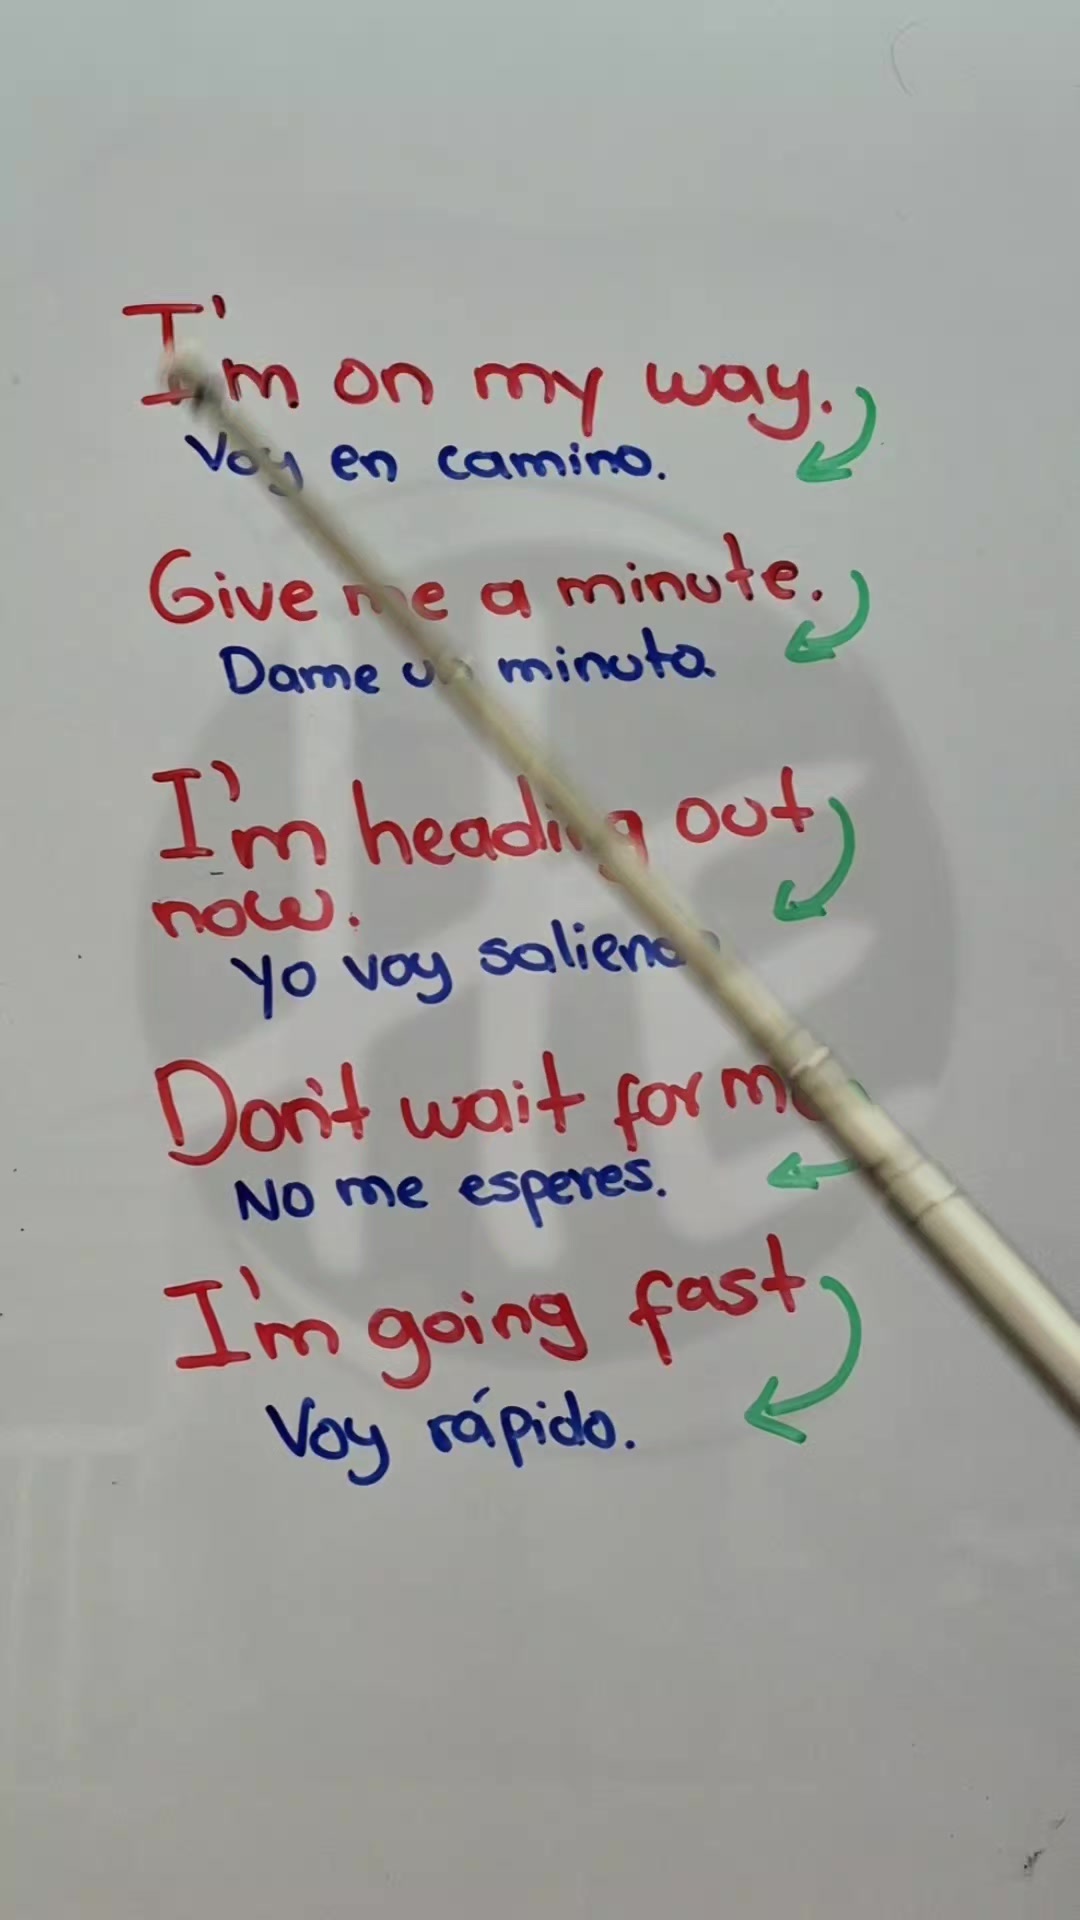 I'm on my way.
Voy en camino.
Give me a minute.
Dame un minuto.
I'm heading out
now.
Yo voy saliendo
Don't wait for me
No me esperes.
I'm going fast
Voy rápido.